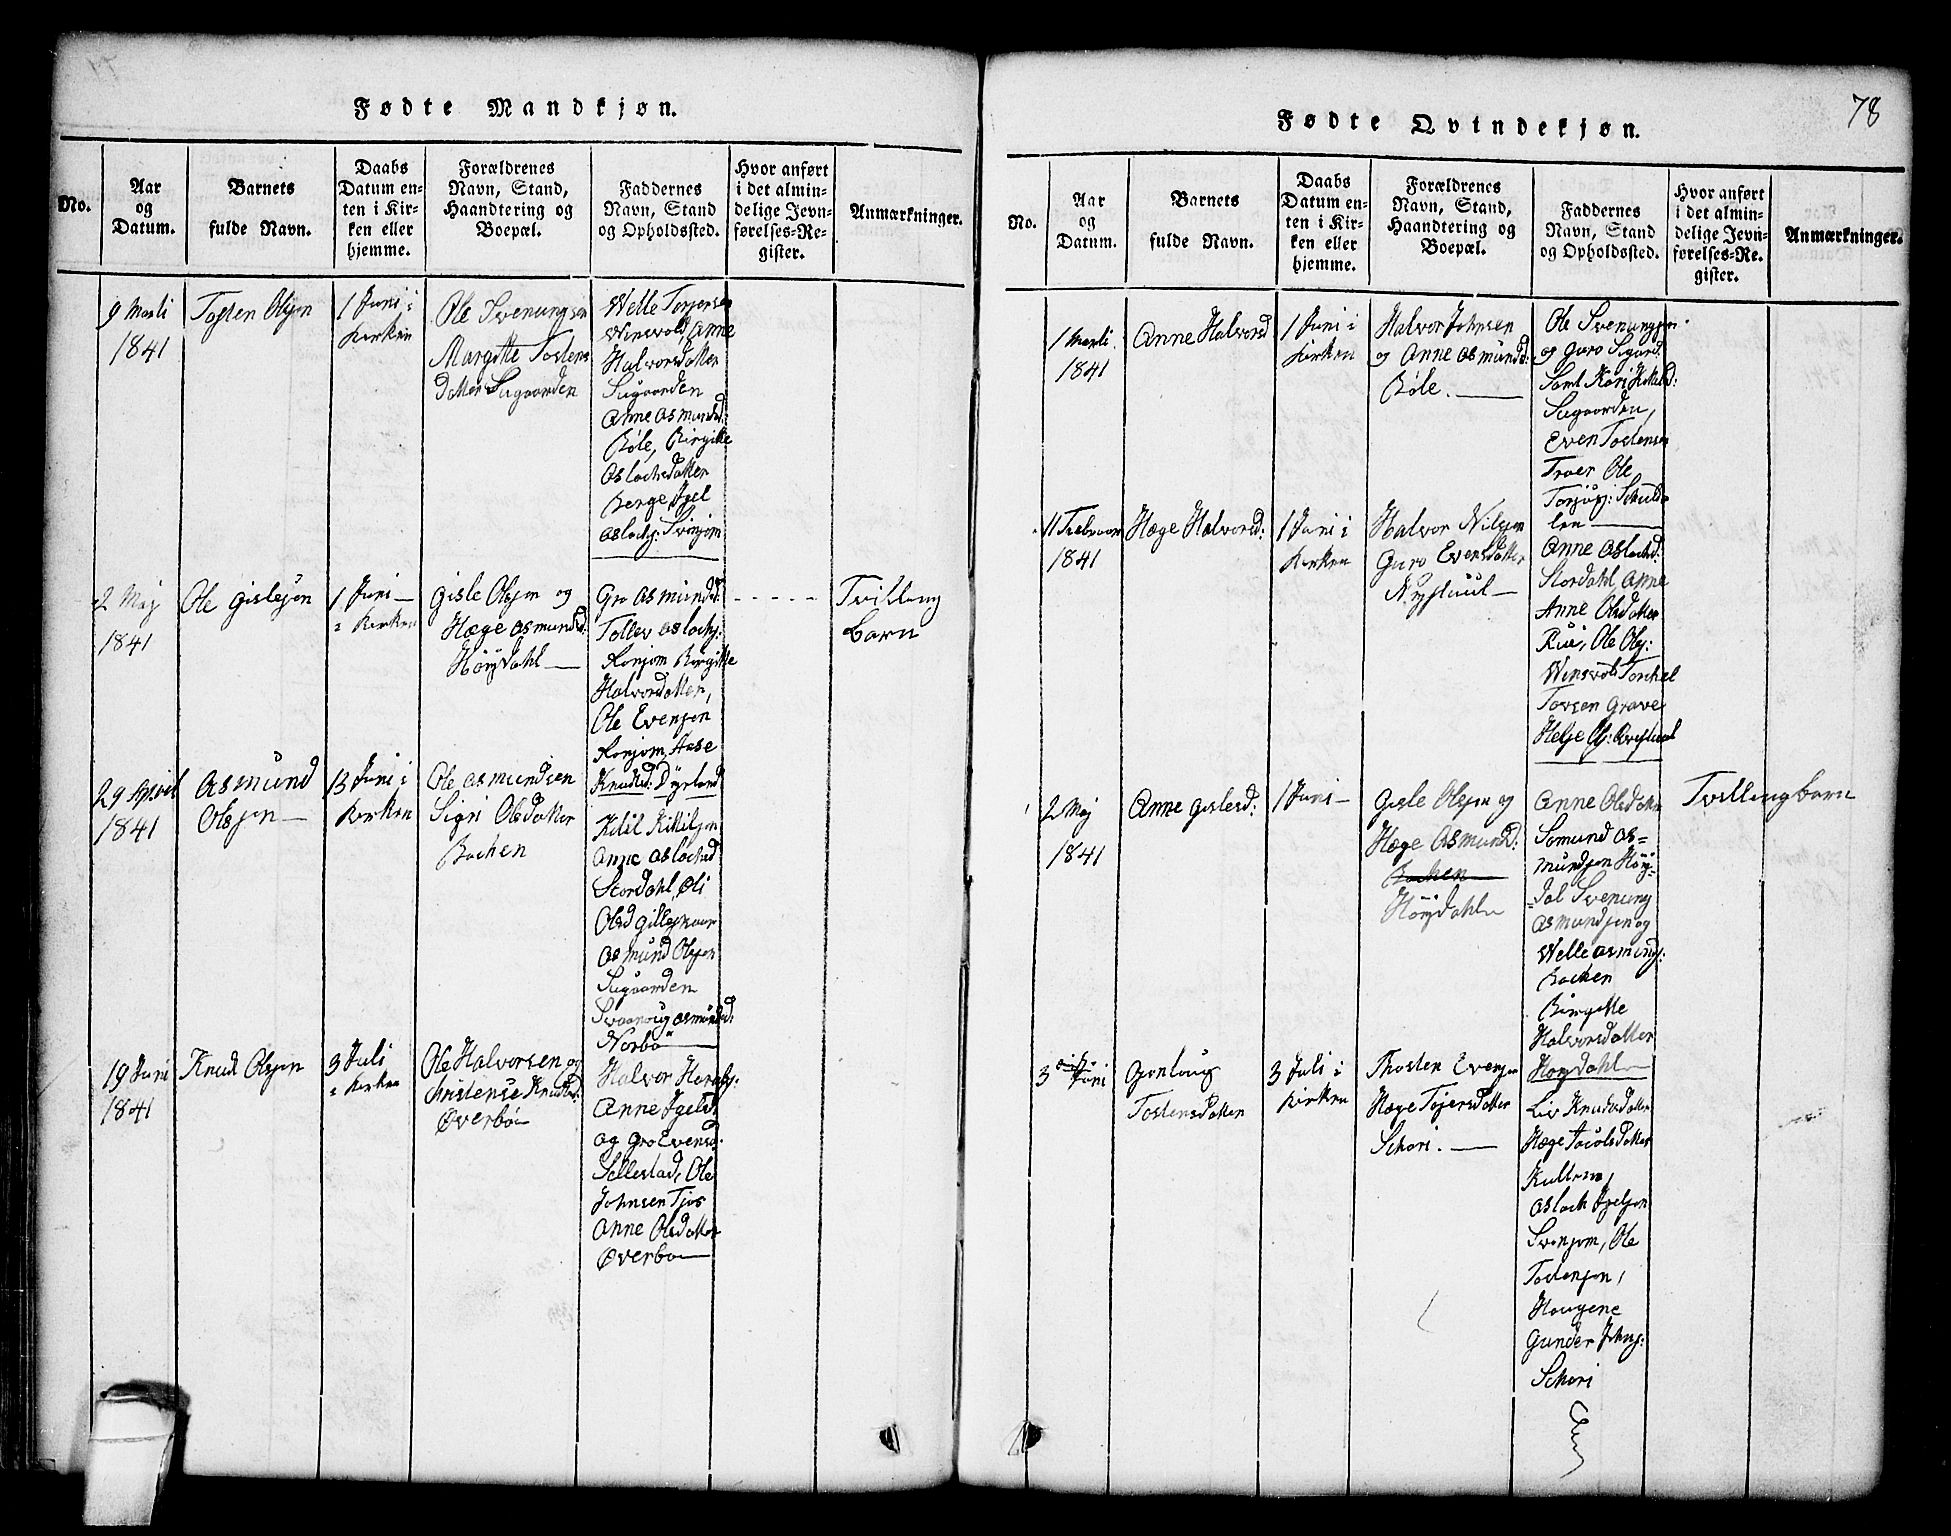 Fødte Mandkjøn.
No.
Aar
og
Datum.
Barnets
fulde Navn.
Daabs
Datum en-
ten i Kir-
ken eller
hjemme.
Forældrenes
Navn, Stand,
Haandtering og
Boepæl.
Faddernes
Navn, Stand
og Opholdssted.
Hvor anført
i det almin-
delige Jevn-
førelses-Re-
gister.
Anmærkninger.
9 Marti
1841
Tosten Olsen
1 Juni i
Kirken
Ole Svenungsen
Margitte Tostens
datter Sugaarden
Welle Torjersen
Winsvold, Anne
Halvorsdatter
Sugaarden
Anne Asmundsd:
Bøle, Birgitte
Aslachsdatter
Berge
Aslachs:
2 Maj
1841
Ole Gislesen
1 Juni
i Kirken
Gisle Olsen og
Hæge Asmundsd:
Höydahl
Gro Asmundsd:
Tollev Aslachs:
Konjom Birgitte
Halvorsdatter,
Ole Evensen
Konjom, Aase
Knudsd: Dyrland
Tvilling
barn
29 April
1841
Asmund
Olsen
13 Juni i
Kirken
Ole Asmundsen
Sigri Olsdatter
Bachen
Ketil Kittilsen
Anne Aslachsd
Stordahl,
Olsd
Asmund Olsen
Sugaarden
Asmundsd:
Norbö
19 Juni
1841
Knud Olsen
3 Juli
i Kirken
Ole Halvorsen og
Christense Knudsd:
Øverbö
Halvor
Anne
og Gro Evensd:
Sellestad, Ole
Johnsen Tjos
Anne Olsdatter
Øverbö
78
Fødte Qvindekjøn.
No.
Aar
og
Datum.
Barnets
fulde Navn.
Daabs
Datum en-
ten i Kir-
ken eller
hjemme.
Forældrenes
Navn, Stand,
Haandtering og
Boepæl.
Faddernes
Navn, Stand
og Opholdssted.
Hvor anført
i det almin-
delige Jevn-
førelses-Re-
gister.
Anmærkninger.
1 Marti
1841
Anne Halvorsd
1 Juni i
Kirken
Halvor Johnsen
og Anne Asmundsd:
Bøle.
Ole Svenungsen
og Guro Sigurd
Saml Kari
Sugaarden,
Even Tostensen
Traer Ole
11 Februar
1841
Hæge Halvorsd:
1 Juni i
Kirken
Halvor Nilsen
Guro Evensdatter
Nystuul
Anne Aslachsd:
Stordahl Anne
Anne Olsdatter
Rui, Ole Ols:
Winsvold Torchel
Torsen Grave
2 Maj
1841
Anne Gislesd:
1 Juni
Gisle Olsen og
Hæge Asmundsd:
Bachen
Höydahl
Anne Olsdatter
Somund As-
mundsen Höy-
dal Svenung
Asmundsen og
Welle Asmunds:
Bachen
Birgitte
Halvorsdatter
Höydahl
Tvillingbarn
3 Juni
Gunloug
Tostensdatter
3 Juli i
Kirken
Thosten Evensen
Hæge Tojersdatter
Schori.
Liv Knudsdatter
Hæge Jacobsdatter
Aslach
Svenjom, Ole
Tostensen,
Hougene
Gunder Johns:
Schori